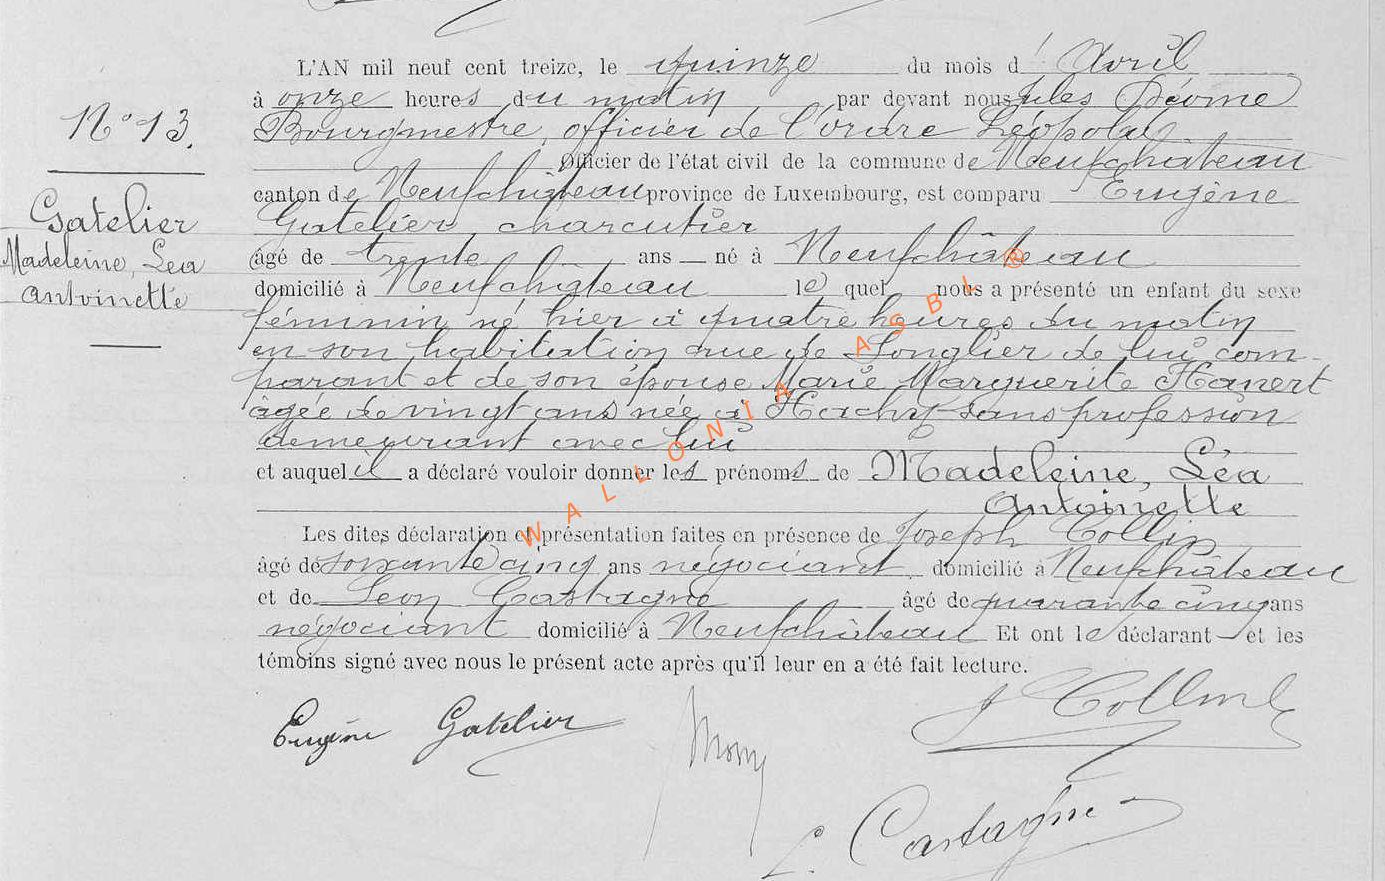 L'AN mil neuf cent treize, le quinze du mois d'Avril
N° 13.
à onze heures du matin par devant nous Jules
Bourgmestre, officier de l'ordre Léopold
Officier de l'état civil de la commune de Neufchâteau
canton de Neufchâteau province de Luxembourg, est comparu Eugène
Gatelier, charcutier
Gatelier
Madeleine, Léa
Antoinette
âgé de trente ans — né à Neufchâteau
domicilié à Neufchâteau lequel nous a présenté un enfant du sexe
féminin né hier à quatre heures du matin
en son habitation rue de Longlier de lui com-
parant et de son épouse Marie Marguerite Hanert
âgée de vingt ans née à Hachy sans profession
demeurant avec lui
et auquel il a déclaré vouloir donner les prénoms de Madeleine, Léa
Antoinette
Les dites déclaration et présentation faites en présence de Joseph Collin
âgé de soixante cinq ans négociant domicilié à Neufchâteau
et de Léon Castagne âgé de quarante cinq ans
négociant domicilié à Neufchâteau Et ont le déclarant — et les
témoins signé avec nous le présent acte après qu'il leur en a été fait lecture.
Eugène Gatelier
J Collin
L. Castagne
WALLONIA ASBL ®